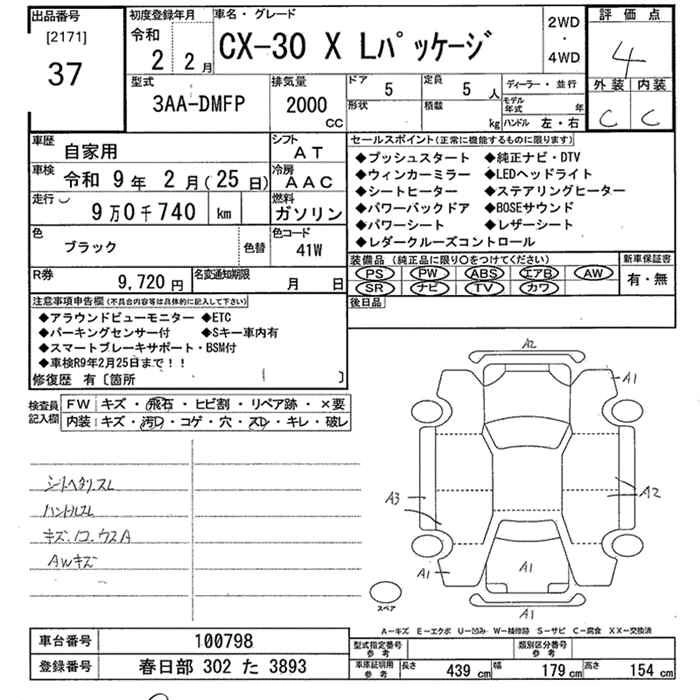 出品番号 [2171] 37
初度登録年月 令和 2年 2月
車名・グレード CX-30 X Lパッケージ
2WD ・ 4WD
評価点 4
外装 C 内装 C
型式 3AA-DMFP
排気量 2000 CC
ドア 5 形状
定員 5 人 積載 kg
ディーラー・並行
モデル年式 年
ハンドル 左・右
車歴 自家用
シフト AT
車検 令和 9年 2月(25日)
冷房 AAC
走行 9万0千740 km
燃料 ガソリン
色 ブラック 色替
色コード 41W
R券 9,720円
名変通知期限 月 日
セールスポイント(正常に機能するものに限ります)
◆プッシュスタート ◆純正ナビ・DTV
◆ウィンカーミラー ◆LEDヘッドライト
◆シートヒーター ◆ステアリングヒーター
◆パワーバックドア ◆BOSEサウンド
◆パワーシート ◆レザーシート
◆レーダークルーズコントロール
装備品 (純正品に限り○をつけてください)
PS PW ABS エアB AW
SR ナビ TV カワ
新車保証書 有・無
後日品
注意事項申告欄(不具合内容等は具体的に記入して下さい)
◆アラウンドビューモニター ◆ETC
◆パーキングセンサー付 ◆Sキー車内有
◆スマートブレーキサポート・BSM付
◆車検R9年2月25日まで!!
修復歴 有〔箇所 〕
検査員記入欄
FW キズ・飛石・ヒビ割・リペア跡・×要
内装: キズ・汚D・コゲ・穴・スレ・キレ・破レ
シートヘタリ スレ
ハンドルスレ
キズ.ノコ.ウスA
AWキズ
A2
A1
A3
A2
A1
A1
A1
スペア
A—キズ E—エクボ U—凹み W—補修跡 S—サビ C—腐食 XX—交換済
車台番号 100798
登録番号 春日部 302 た 3893
型式指定番号 参考
類別区分番号 参考
車庫証明用 参考 長さ 439 cm 幅 179 cm 高さ 154 cm